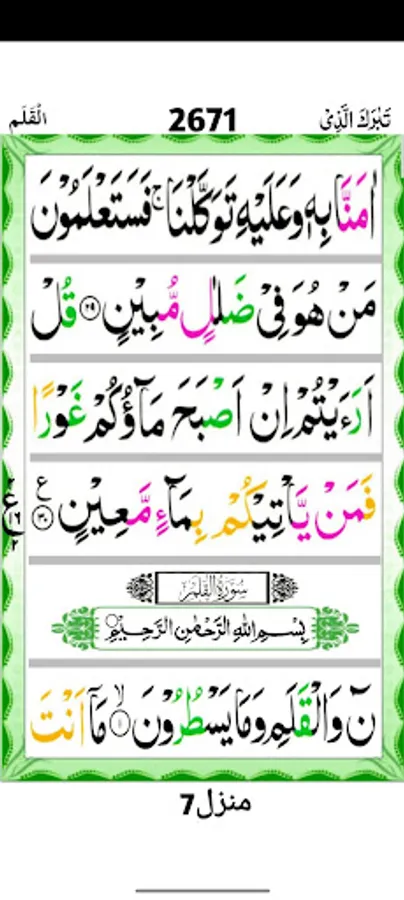 تَبٰرَكَ الَّذِىْ 2671 الْقَلَم
اٰمَنَّا بِهٖ وَعَلَيْهِ تَوَكَّلْنَا ۚ فَسَتَعْلَمُوْنَ
مَنْ هُوَ فِىْ ضَلٰلٍ مُّبِيْنٍ ﴿۲۹﴾ قُلْ
اَرَءَيْتُمْ اِنْ اَصْبَحَ مَآؤُكُمْ غَوْرًا
فَمَنْ يَّاْتِيْكُمْ بِمَآءٍ مَّعِيْنٍ ﴿۳۰﴾ ع
سُوْرَةُ الْقَلَمِ
بِسْمِ اللهِ الرَّحْمٰنِ الرَّحِيْمِ
نٓ وَالْقَلَمِ وَمَا يَسْطُرُوْنَ ۙ﴿۱﴾ مَآ اَنْتَ
منزل 7